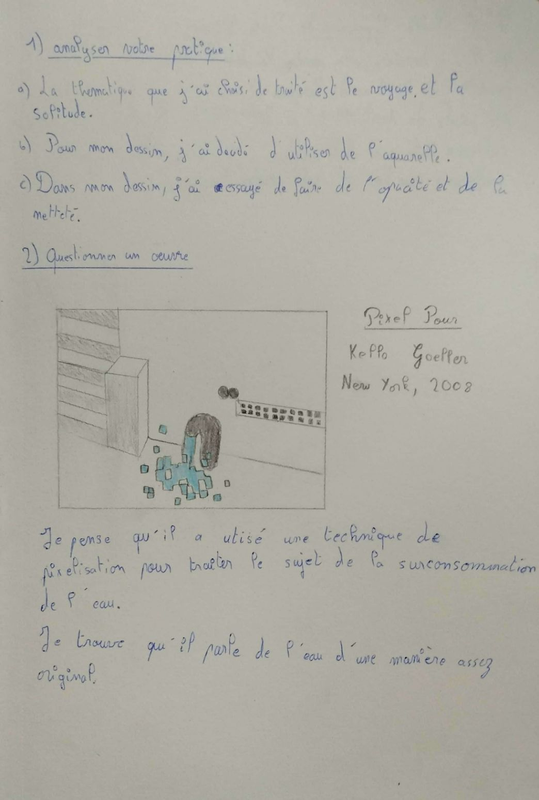 1) analyser votre pratique :
a) La thématique que j'ai choisi de traité est le voyage, et la
solitude.
b) Pour mon dessin, j'ai décidé d'utiliser de l'aquarelle.
c) Dans mon dessin, j'ai essayé de faire de l'opacité et de la
netteté.
2) Questionner un oeuvre
Pixel Pour
Kello Goeller
New York, 2008
Je pense qu'il a utisé une technique de
pixelisation pour traiter le sujet de la surconsommation
de l'eau.
Je trouve qu'il parle de l'eau d'une manière assez
original.